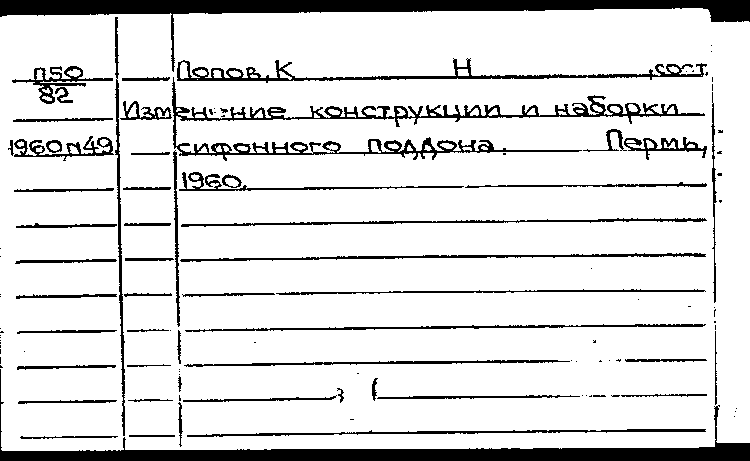 П50 Попов, К Н , сост.
82
Изменение конструкции и наборки
1960, п49 сифонного поддона. Пермь,
1960.